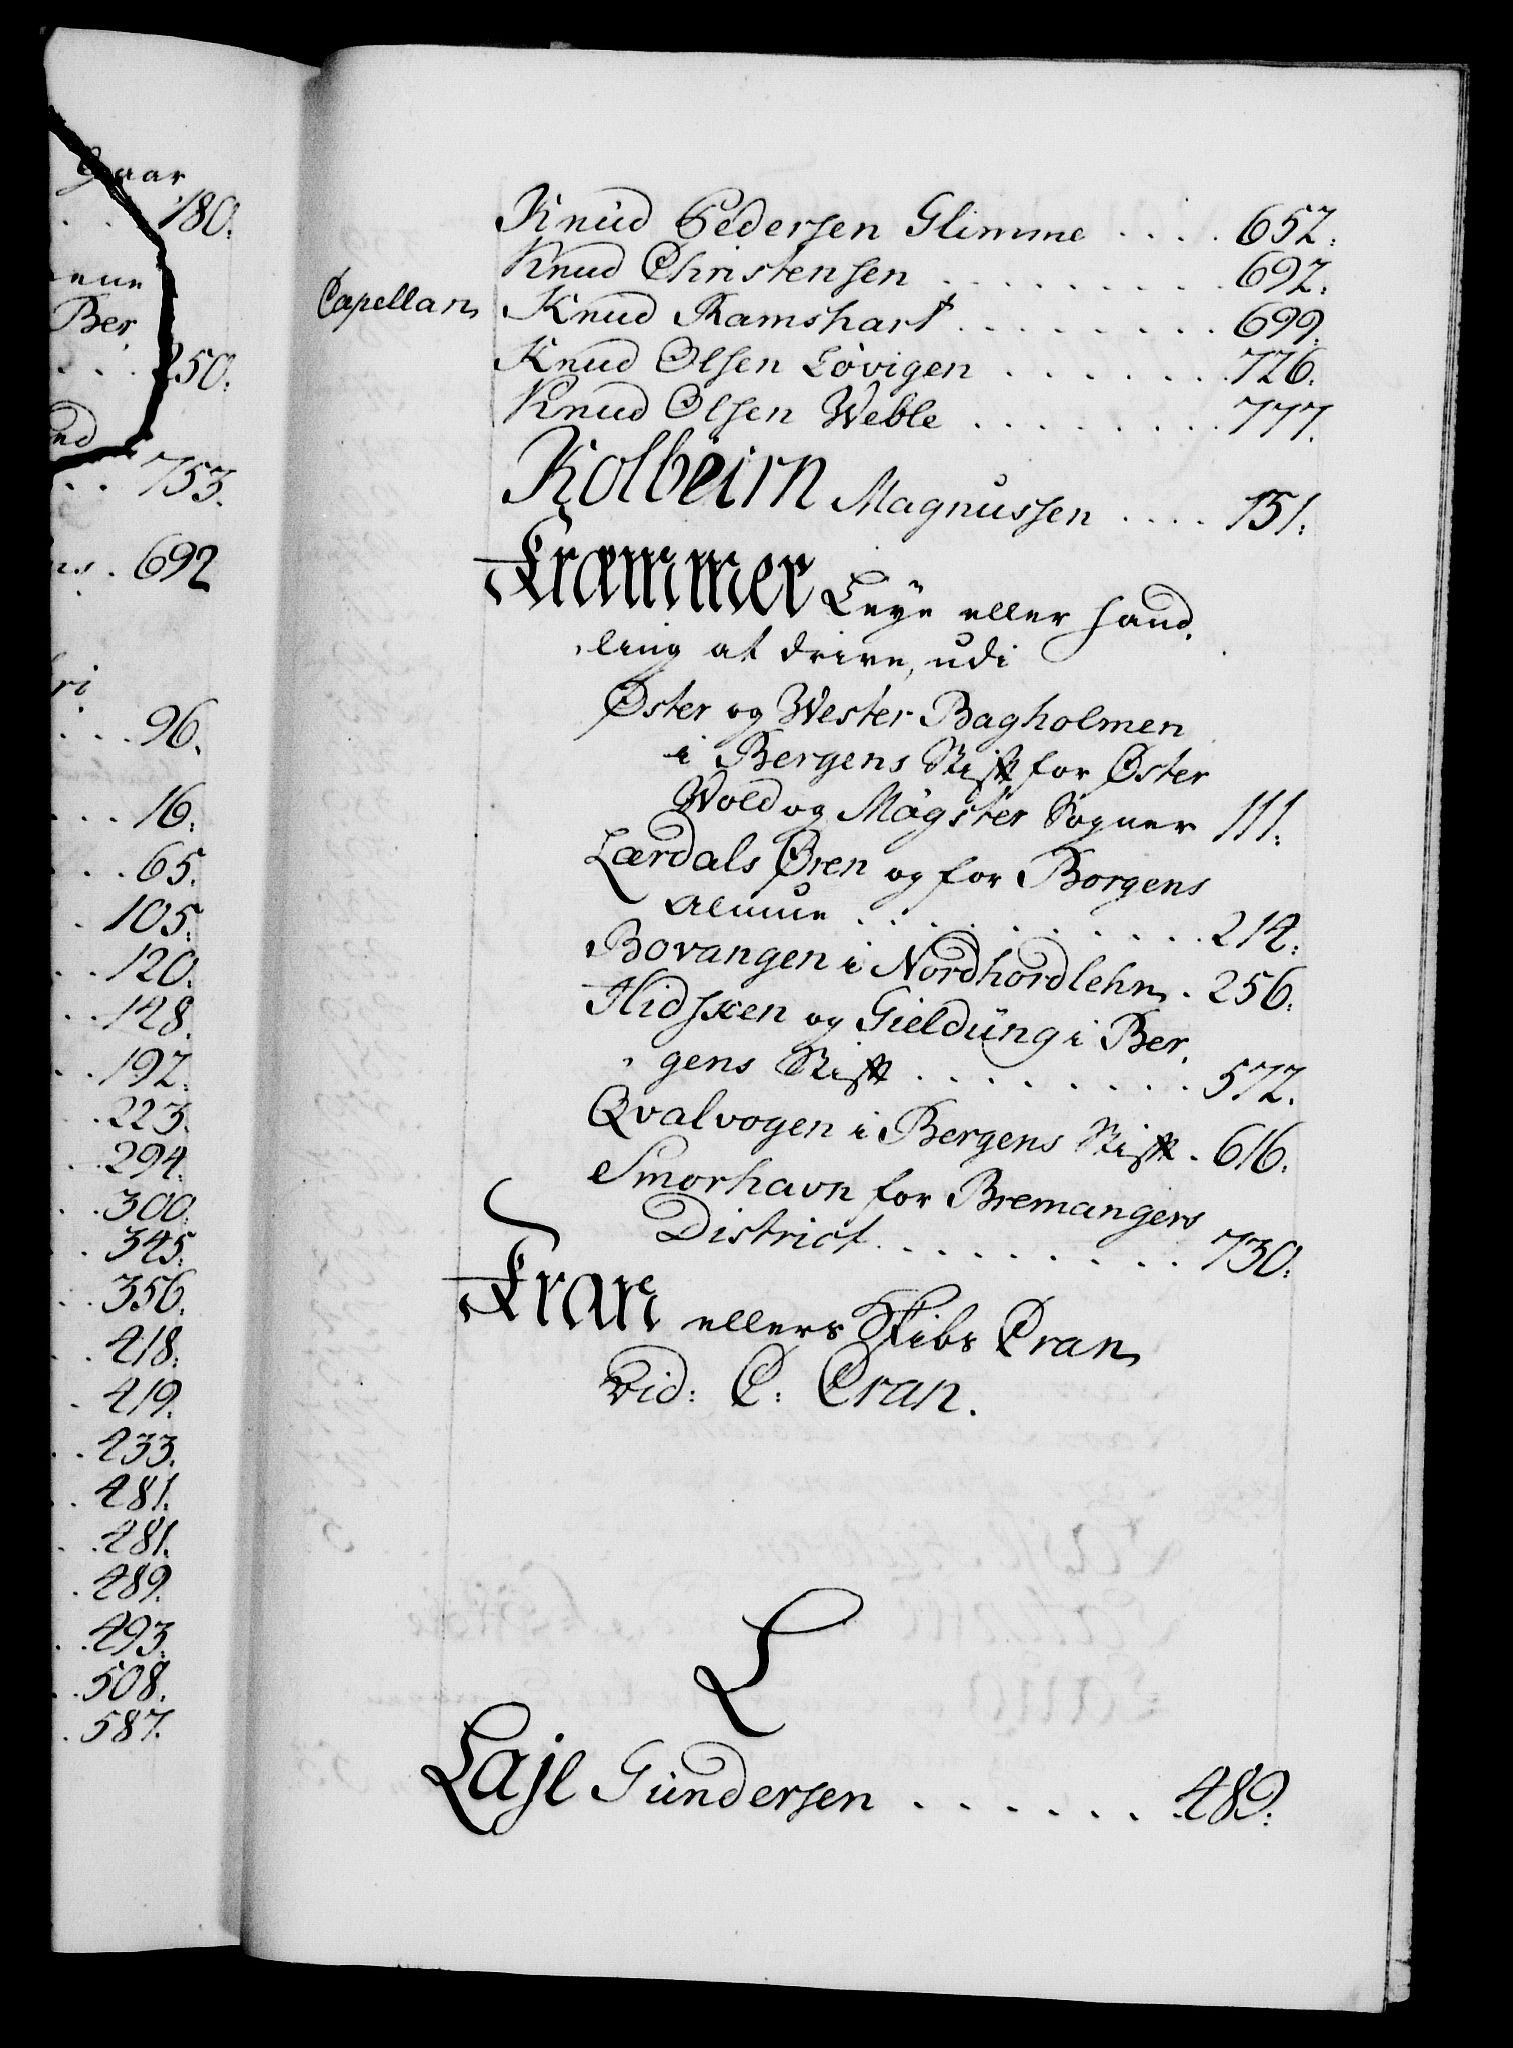 Gaar
180.
ene
Ber.
250.
753.
692
96.
16.
65.
105.
120.
128.
192.
223.
294.
300.
345.
356.
418.
419.
433.
481.
481.
489.
493.
508.
587.
Knud Pedersen Glimme .... 652.
Knud Christensen ......... 692.
Capellan Knud Ramshart ........ 699.
Knud Olsen Løvigen ....... 726.
Knud Olsen Weble ........ 777.
Kolbeirn Magnussen .... 151.
Kræmmer Leye eller Hand,
ling at drive, udi
Øster og Wester Bagholmen
i Bergens Stift for Øster
Wold og Mögster Sogner 111.
Lærdals Øren og for Borgens
Almue ........... 214.
Bovangen i Nordhordlehn . 256.
Hidsxen og Gieldüng i Ber,
gens Stift ......... 572.
Qvalvogen i Bergens Stift . 616.
Smorhavn for Bremangers
District ......... 730.
Kran ellers Skibs Cran
vid: C: Cran.
L
Lajl Gündersen ...... 489.